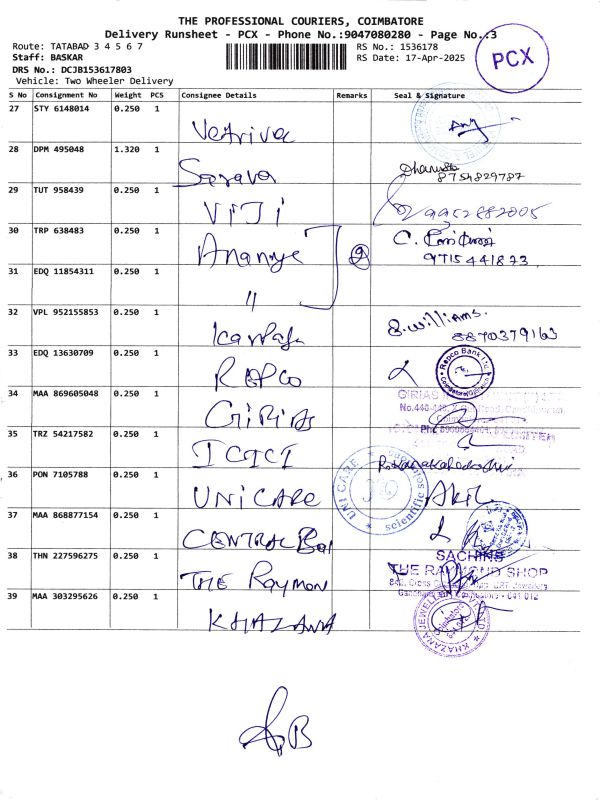 THE PROFESSIONAL COURIERS, COIMBATORE
Delivery Runsheet - PCX - Phone No.:9047080280 - Page No.:3
Route: TATABAD 3 4 5 6 7
RS No.: 1536178
PCX
Staff: BASKAR
RS Date: 17-Apr-2025
DRS No.: DCJB153617803
Vehicle: Two Wheeler Delivery
S No Consignment No Weight PCS Consignee Details Remarks Seal & Signature
27 STY 6148014 0.250 1
Vetrivel
28 DPM 495048 1.320 1
Sarava 8754829787
29 TUT 958439 0.250 1
VIJI 9952882005
30 TRP 638483 0.250 1
Ananye C.
9715441873
31 EDQ 11854311 0.250 1
"
32 VPL 952155853 0.250 1 S. Williams.
8870379163
33 EDQ 13630709 0.250 1
REPCO Repco Bank Ltd
34 MAA 869605048 0.250 1
GIRIAS GIRIAS
35 TRZ 54217582 0.250 1
ICICI
36 PON 7105788 0.250 1
UNICARE UNI CARE scientific Akil
37 MAA 868877154 0.250 1
CENTRAL Ban
38 THN 227596275 0.250 1 SACHINS
THE Raymon THE RAYMOND SHOP
39 MAA 303295626 0.250 1
KHAZANA KHAZANA JEWELLERY Coimbatore